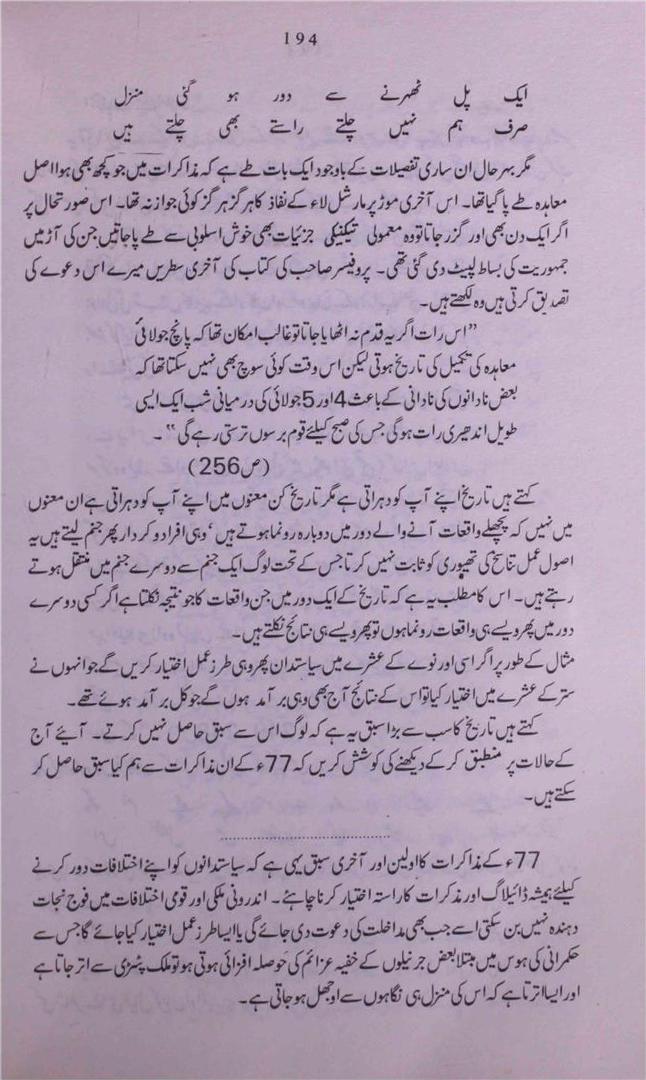 194
ایک پل ٹھہرنے سے دور ہو گئی منزل
صرف ہم نہیں چلتے راستے بھی چلتے ہیں
مگر بہر حال ان ساری تفصیلات کے باوجود ایک بات طے ہے کہ مذاکرات میں جو کچھ بھی ہوا اصل
معاہدہ طے پا گیا تھا۔ اس آخری موڑ پر مارشل لاء کے نفاذ کا ہر گز ہر گز کوئی جواز نہ تھا۔ اس صورتحال پر
اگر ایک دن بھی اور گزر جاتا تو وہ معمولی تیکنیکی جزئیات بھی خوش اسلوبی سے طے پا جاتیں جن کی آڑ میں
جمہوریت کی بساط لپیٹ دی گئی تھی۔ پروفیسر صاحب کی کتاب کی آخری سطریں میرے اس دعوے کی
تصدیق کرتی ہیں وہ لکھتے ہیں۔
”اس رات اگر یہ قدم نہ اٹھایا جاتا تو غالب امکان تھا کہ پانچ جولائی
معاہدہ کی تکمیل کی تاریخ ہوتی لیکن اس وقت کوئی سوچ بھی نہیں سکتا تھا کہ
بعض نادانوں کی نادانی کے باعث 4 اور 5 جولائی کی درمیانی شب ایک ایسی
طویل اندھیری رات ہوگی جس کی صبح کیلئے قوم برسوں ترستی رہے گی“۔
(ص 256)
کہتے ہیں تاریخ اپنے آپ کو دہراتی ہے مگر تاریخ کن معنوں میں اپنے آپ کو دہراتی ہے ان معنوں
میں نہیں کہ پچھلے واقعات آنے والے دور میں دوبارہ رونما ہوتے ہیں‘ وہی افراد و کردار پھر جنم لیتے ہیں یہ
اصول عمل تناسخ کی تھیوری کو ثابت نہیں کرتا جس کے تحت لوگ ایک جنم سے دوسرے جنم میں منتقل ہوتے
رہتے ہیں۔ اس کا مطلب یہ ہے کہ تاریخ کے ایک دور میں جن واقعات کا جو نتیجہ نکلتا ہے اگر کسی دوسرے
دور میں پھر ویسے ہی واقعات رونما ہوں تو پھر ویسے ہی نتائج نکلتے ہیں۔
مثال کے طور پر اگر اسی اور نوے کے عشرے میں سیاستدان پھر وہی طرز عمل اختیار کریں گے جو انہوں نے
ستر کے عشرے میں اختیار کیا تو اس کے نتائج آج بھی وہی برآمد ہوں گے جو کل برآمد ہوئے تھے۔
کہتے ہیں تاریخ کا سب سے بڑا سبق یہ ہے کہ لوگ اس سے سبق حاصل نہیں کرتے۔ آیئے آج
کے حالات پر منطبق کر کے دیکھنے کی کوشش کریں کہ 77ء کے ان مذاکرات سے ہم کیا سبق حاصل کر
سکتے ہیں۔
77ء کے مذاکرات کا اولین اور آخری سبق یہی ہے کہ سیاستدانوں کو اپنے اختلافات دور کرنے
کیلئے ہمیشہ ڈائیلاگ اور مذاکرات کا راستہ اختیار کرنا چاہئے۔ اندرونی ملکی اور قومی اختلافات میں فوج نجات
دہندہ نہیں بن سکتی اسے جب بھی مداخلت کی دعوت دی جائے گی یا ایسا طرز عمل اختیار کیا جائے گا جس سے
حکمرانی کی ہوس میں مبتلا بعض جرنیلوں کے خفیہ عزائم کی حوصلہ افزائی ہوتی ہو تو ملک پٹڑی سے اتر جاتا ہے
اور ایسا اترتا ہے کہ اس کی منزل ہی نگاہوں سے اوجھل ہو جاتی ہے۔